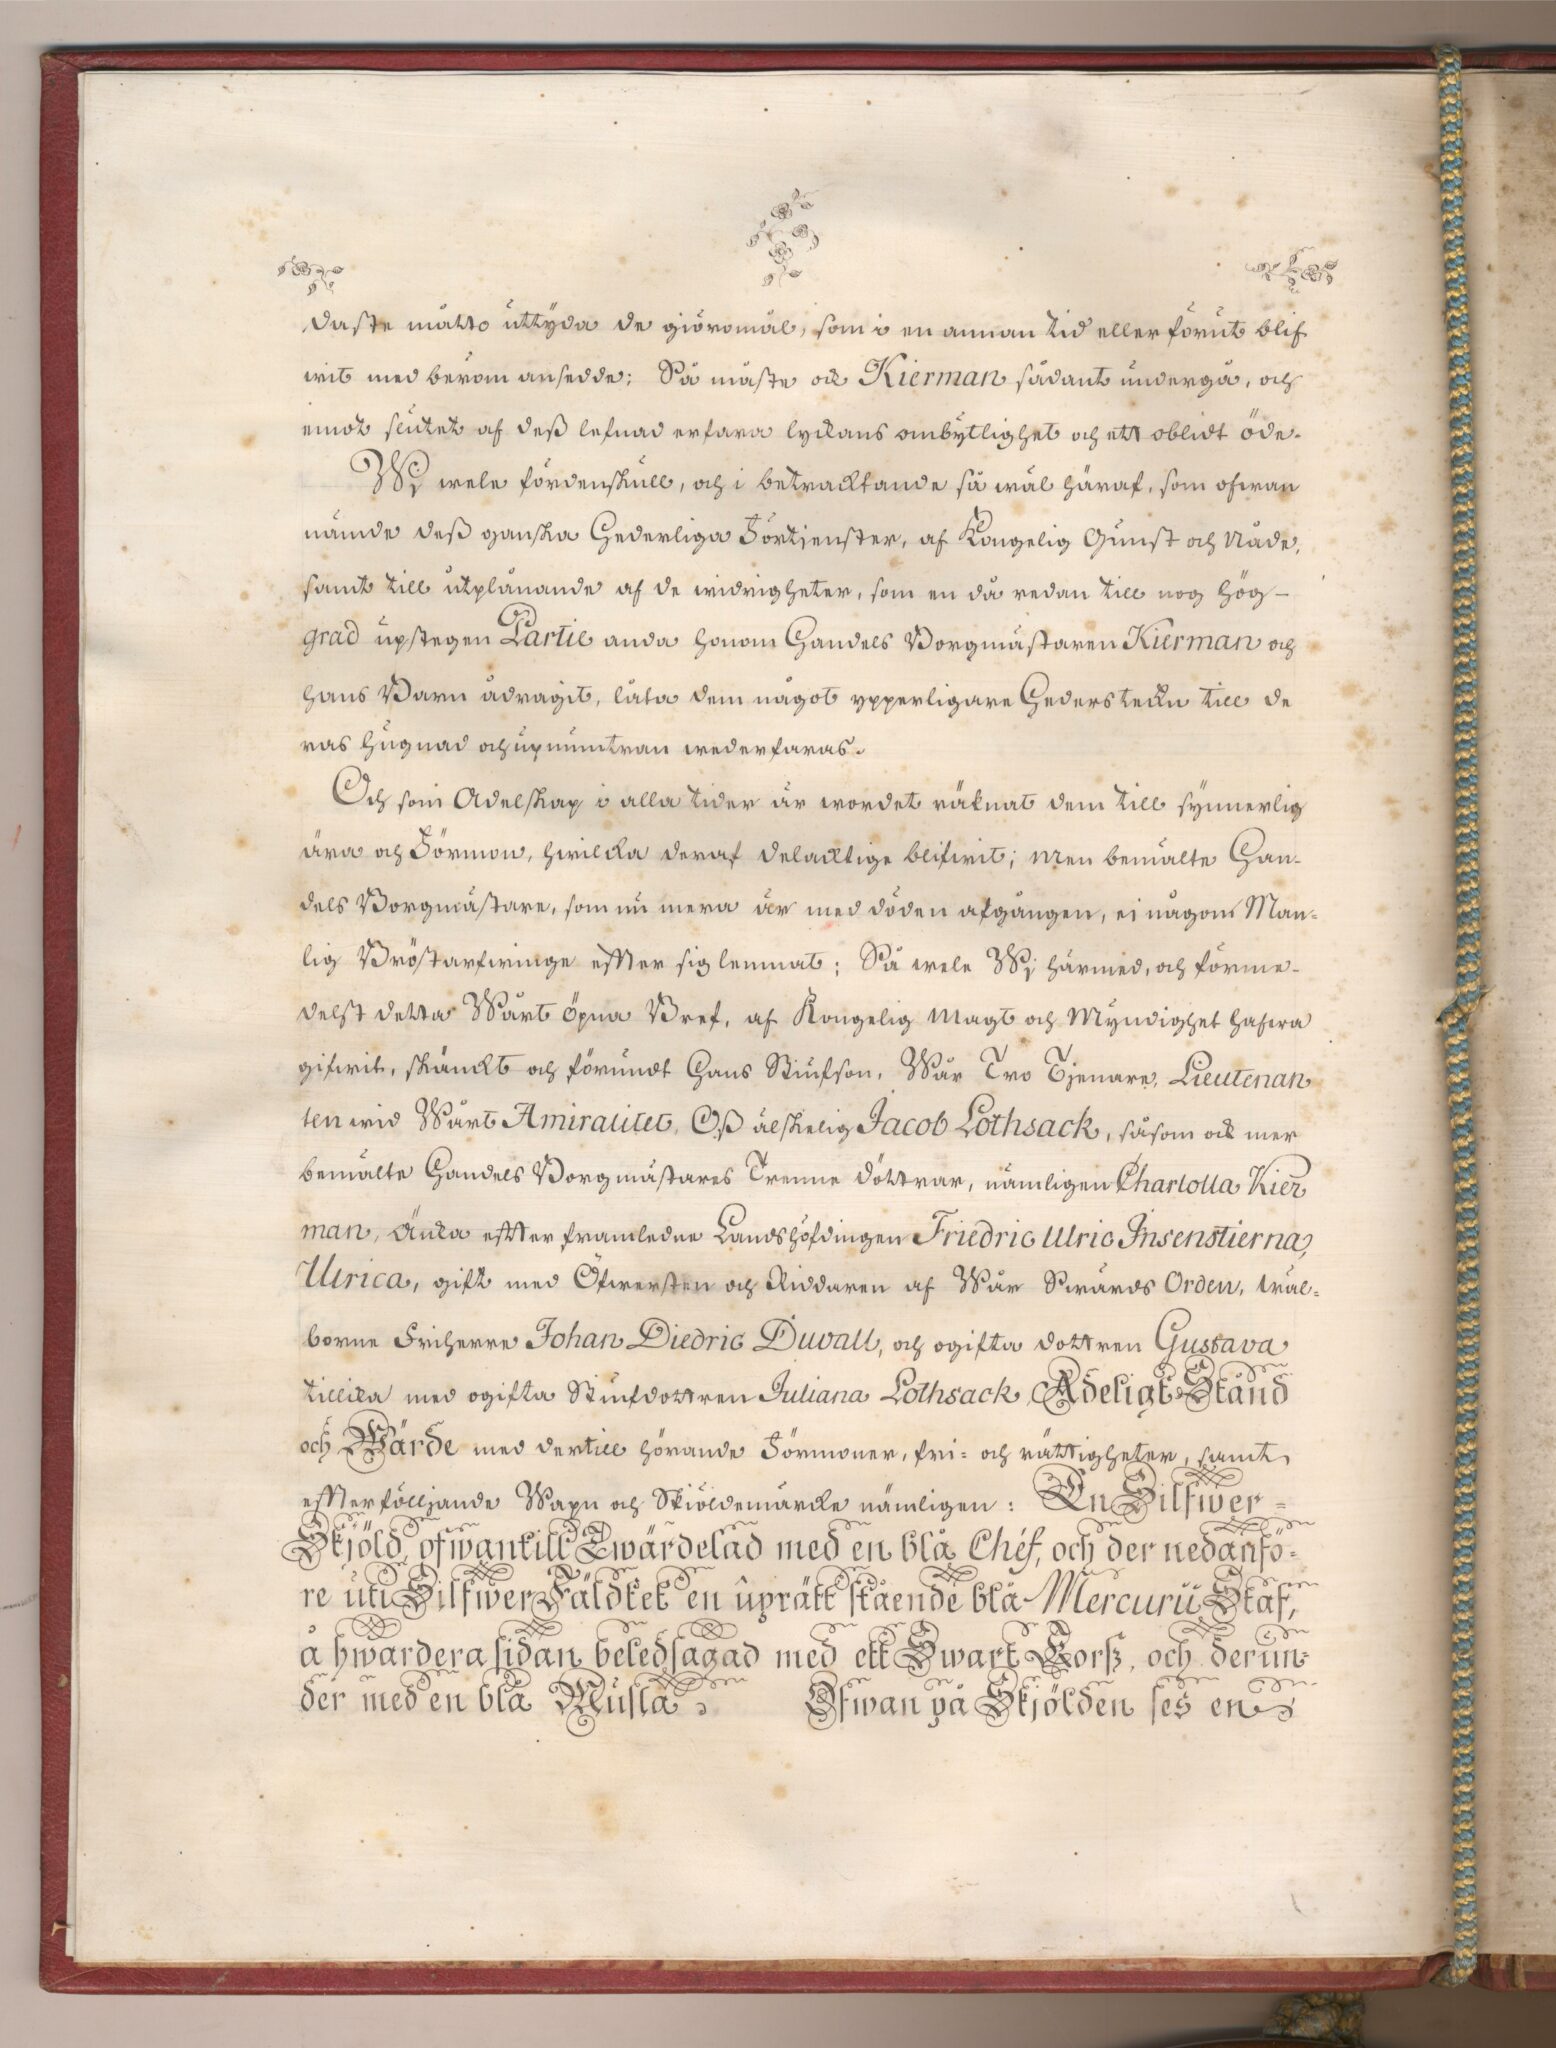 daste måtto uttyda de giöromål, som i en annan tid eller förut blif
wit med beröm ansedde; Så måste ock Kierman sådant undergå, och
emot slutet af deß lefnad erfara lyckans ombytlighet och ett oblidt öde.
Wj wele fördenskull, och i betracktande så wäl häraf, som ofwan
nämde deß ganska Hederliga Förtjenster, af Kongelig Gunst och Nåde,
samt till utplånande af de widrigheter, som en då redan till nog hög-
grad upstegen Partie anda honom Handels Borgmästaren Kierman och
hans Barn ådragit, låta dem något ypperligare Hedersteckn till de
ras hugnad och upmuntran wederfaras.
Och som Adelskap i alla tider är wordet räknat dem till synnerlig
ära och Förmon, hwilcka deraf delacktige blifwit; Men bemälte Han-
dels Borgmästare, som nu mera är med döden afgången, ei någon Man-
lig Bröstarfwinge effter sig lemnat; Så wele Wj härmed, och förme-
delst detta Wårt öpna Bref, af Kongelig Magt och Myndighet hafwa
gifwit, skänckt och förundt Hans Stiufson, Wår Tro Tjenare, Lieutenan
ten wid Wårt Amiralitet, Oß älskelig Jacob Lothsack, såsom ock mer
bemälte Handels Borgmästares Trenne döttrar, nämligen Charlotta Kier
man, Äncka effter framledne Landshöfdingen Friedric Ulric Insenstierna,
Ulrica, gift med Öfwersten och Riddaren af Wår Swärds Orden, wäl-
borne Friherre Johan Diedric Duvall, och ogifta dottren Gustava
tillicka med ogifta Stiufdottren Juliana Lothsack, Adeligt Stånd
och Wärde med dertill hörande Förmoner, fri- och rättigheter, samt
effterföljande Wapn och Skiöldemärcke nämligen: En Silfwer-
Skjöld, ofwantill Twärdelad med en blå Chéf, och der nedanfö-
re uti Silfwer Fäldtet en uprätt stående blå Mercurii Staf,
å hwardera sidan beledsagad med ett Swart Korß, och derun-
der med en blå Musla. Ofwan på Skjölden ses en